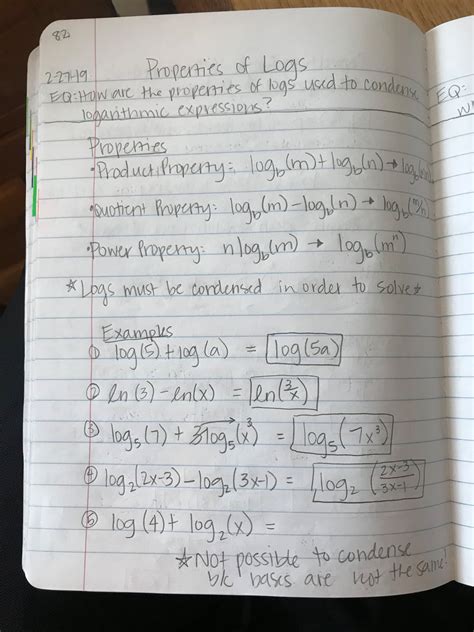 82
2-27-19 Properties of Logs
EQ: How are the properties of logs used to condense
logarithmic expressions?
Properties
•Product Property: log_b(m)+log_b(n)→log_b
•Quotient Property: log_b(m)-log_b(n)→log_b(m/n)
•Power Property: nlog_b(m) → log_b(m^n)
*Logs must be condensed in order to solve*
Examples
① log(5)+log(a) = log(5a)
② ln(3)-ln(x) = ln(3/x)
③ log_5(7)+3log_5(x^3) = log_5(7x^3)
④ log_2(2x-3)-log_2(3x-1) = log_2((2x-3)/(3x-1))
⑤ log(4)+log_2(x) =
*Not possible to condense
b/c bases are not the same!
EQ: